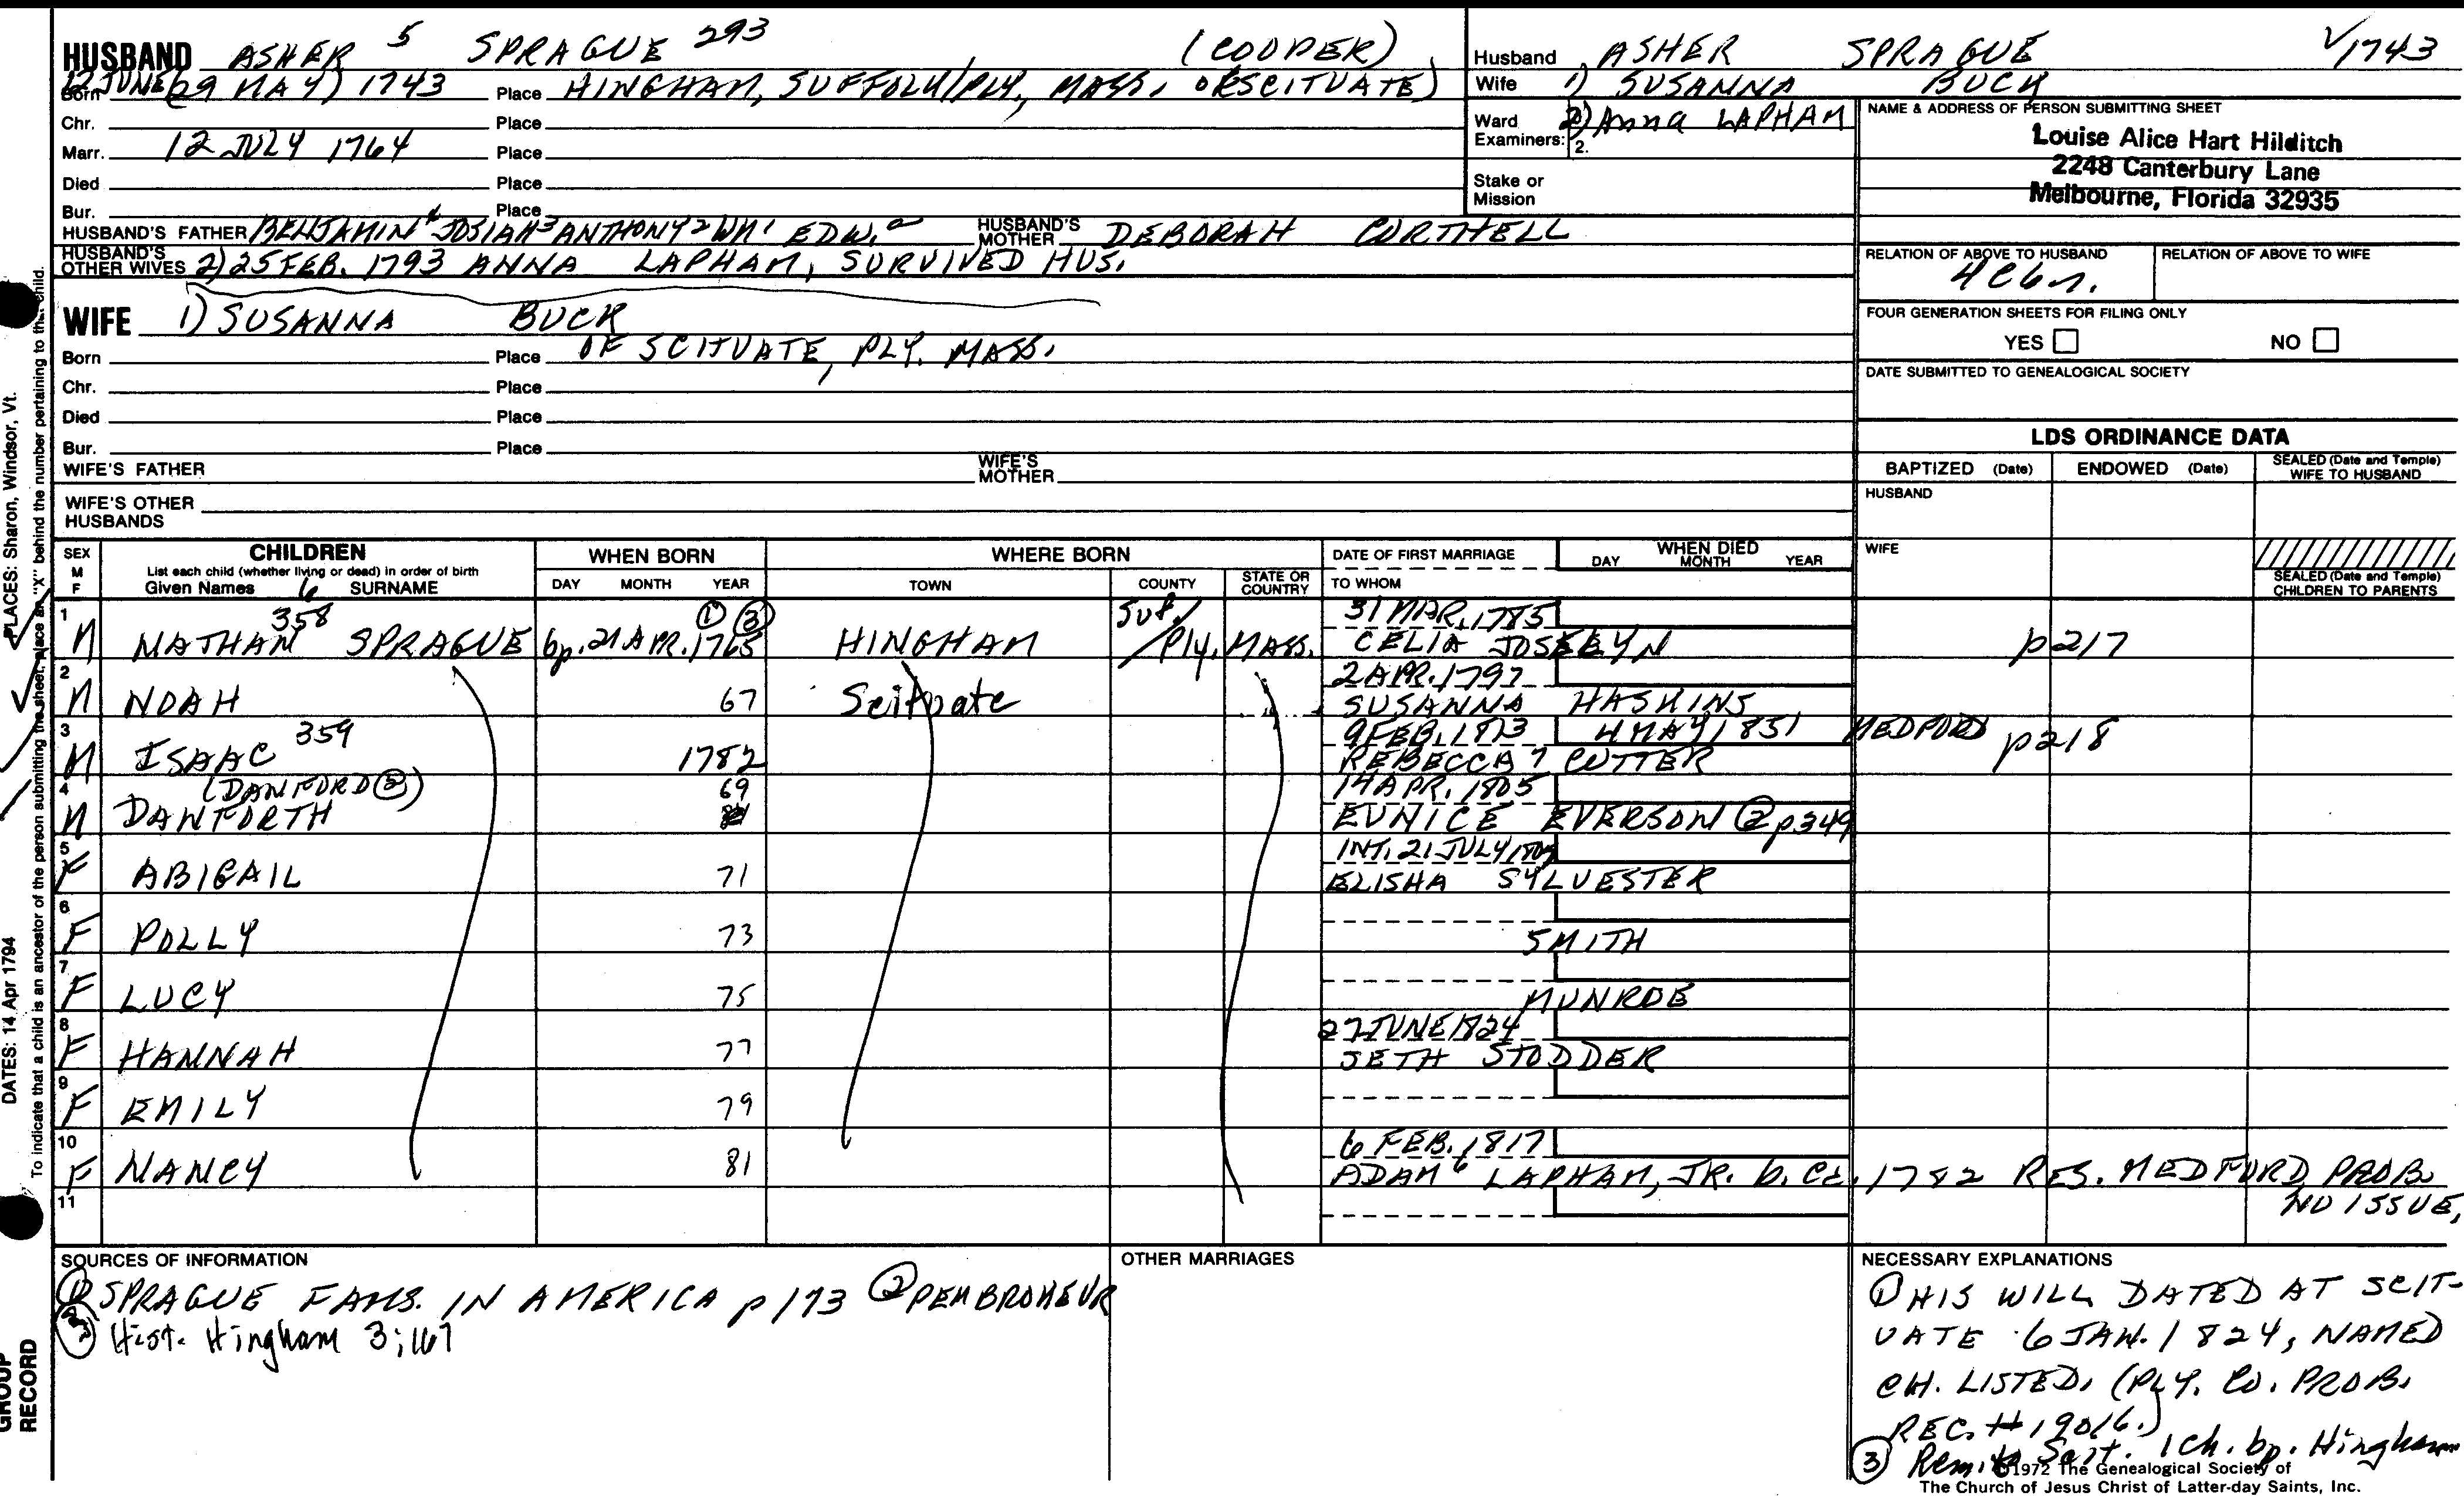 HUSBAND ASHER 5 SPRAGUE 293 (COOPER)
Born 12 JUNE (29 MAY) 1743 Place HINGHAM, SUFFOLK/PLY, MASS, OR SCITUATE)
Chr. Place
Marr. 12 JULY 1764 Place
Died Place
Bur. Place
HUSBAND'S FATHER BENJAMIN4 JOSIAH3 ANTHONY2 WM1 EDW.a HUSBAND'S MOTHER DEBORAH CORTHELL
HUSBAND'S OTHER WIVES 2) 25 FEB. 1793 ANNA LAPHAM, SURVIVED HUS.
WIFE 1) SUSANNA BUCK
Born Place OF SCITUATE, PLY. MASS.
Chr. Place
Died Place
Bur. Place
WIFE'S FATHER WIFE'S MOTHER
WIFE'S OTHER HUSBANDS
Husband ASHER SPRAGUE V1743
Wife 1) SUSANNA BUCK
Ward Examiners: 2) Anna LAPHAM
2.
Stake or Mission
NAME & ADDRESS OF PERSON SUBMITTING SHEET
Louise Alice Hart Hilditch
2248 Canterbury Lane
Melbourne, Florida 32935
RELATION OF ABOVE TO HUSBAND RELATION OF ABOVE TO WIFE
FOUR GENERATION SHEETS FOR FILING ONLY
YES NO
DATE SUBMITTED TO GENEALOGICAL SOCIETY
LDS ORDINANCE DATA
BAPTIZED (Date) ENDOWED (Date) SEALED (Date and Temple) WIFE TO HUSBAND
HUSBAND
WIFE
SEALED (Date and Temple) CHILDREN TO PARENTS
SEX M F CHILDREN WHEN BORN WHERE BORN DATE OF FIRST MARRIAGE WHEN DIED
List each child (whether living or dead) in order of birth
Given Names 6 SURNAME DAY MONTH YEAR TOWN COUNTY STATE OR COUNTRY TO WHOM DAY MONTH YEAR
1 358 ① ③ Suf./ 31 MAR. 1785
M NATHAN SPRAGUE bp. 21 APR. 1765 HINGHAM /Ply. MASS. CELIA JOSELYN p217
2 2 APR. 1797
M NOAH 67 Scituate SUSANNA HASKINS
3 359 9 FEB. 1813 4 MAY 1851 MEDFORD p218
M ISAAC 1782 REBECCA 7 CUTTER
4 (DANFORD②) 69 14 APR. 1805
M DANFORTH EUNICE EVERSON ② p.349
5 INT. 21 JULY
F ABIGAIL 71 ELISHA SYLVESTER
6
F POLLY 73 SMITH
7
F LUCY 75 MUNROE
8 27 JUNE 1824
F HANNAH 77 SETH STODDER
9
F EMILY 79
10 6 FEB. 1817
F NANCY 81 ADAM6 LAPHAM, JR. b. Ca. 1782 RES. MEDFORD, PROB.
11 NO ISSUE,
SOURCES OF INFORMATION
① SPRAGUE FAMS. IN AMERICA p 173 ② PEMBROKE VR
③ Hist. Hingham 3;167
OTHER MARRIAGES
NECESSARY EXPLANATIONS
① HIS WILL DATED AT SCIT-
UATE 6 JAN. 1824, NAMED
CH. LISTED. (PLY. CO. PROB.
REC. # 19016.)
③ Rem. to Scit. 1 ch. bp. Hingham
©1972 The Genealogical Society of
The Church of Jesus Christ of Latter-day Saints, Inc.
PLACES: Sharon, Windsor, Vt.
DATES: 14 Apr 1794
To indicate that a child is an ancestor of the person submitting the sheet, place an "X" behind the number pertaining to that child.
GROUP
RECORD